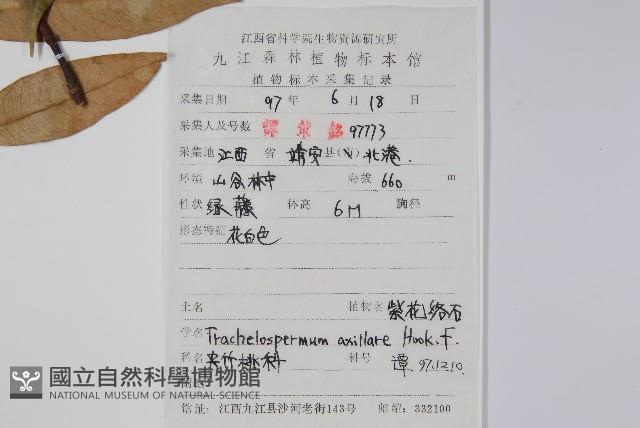 江西省科学院生物资源研究所
九江森林植物标本馆
植物标本采集记录
采集日期 97 年 6 月 18 日
采集人及号数 譚策銘 97773
采集地 江西 省 靖安 县(市) 北港.
环境 山谷林中 海拔 660 m
性状 绿藤 体高 6M 胸径
形态特征 花白色
土名 植物名 紫花络石
学名 Trachelospermum axillare Hook.f.
科名 夹竹桃科 科号 譚.97.12.10.
國立自然科學博物館
NATIONAL MUSEUM OF NATURAL SCIENCE
馆址: 江西九江县沙河老街143号 邮编: 332100